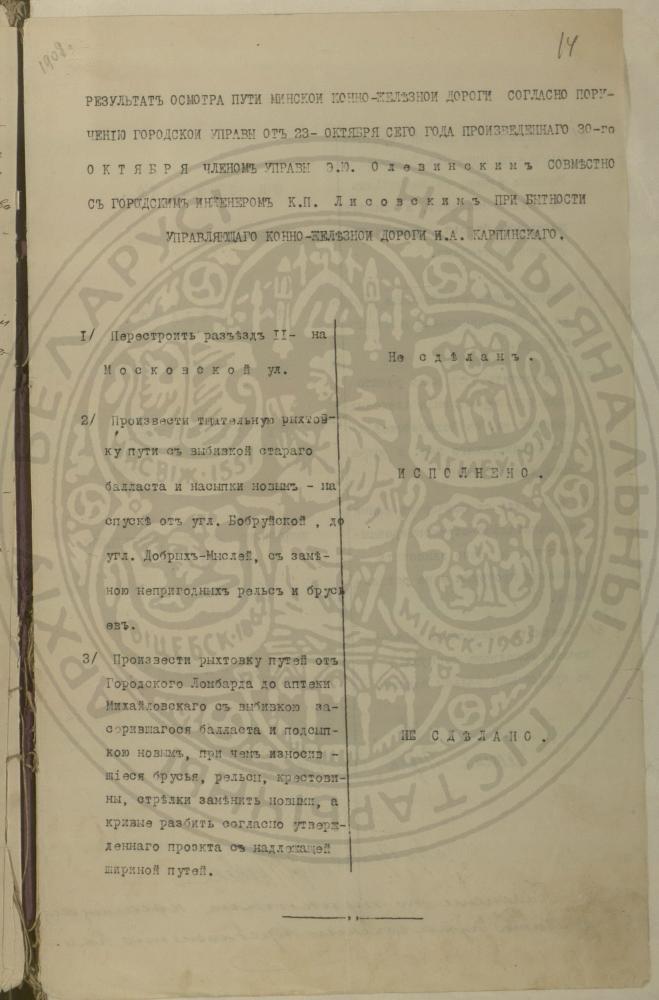 1908г.
14
РЕЗУЛЬТАТЪ ОСМОТРА ПУТИ МИНСКОЙ КОННО-ЖЕЛѢЗНОЙ ДОРОГИ СОГЛАСНО ПОРУ-
ЧЕНІЮ ГОРОДСКОЙ УПРАВЫ ОТЪ 23- ОКТЯБРЯ СЕГО ГОДА ПРОИЗВЕДЕННАГО 30-го
ОКТЯБРЯ ЧЛЕНОМЪ УПРАВЫ Э.Ю. Олевинскимъ СОВМѢСТНО
СЪ ГОРОДСКИМЪ ИНЖЕНЕРОМЪ К.П. Лисовскимъ ПРИ БЫТНОСТИ
УПРАВЛЯЮЩАГО КОННО-ЖЕЛѢЗНОЙ ДОРОГИ И.А. КАРПИНСКАГО.
I/ Перестроить разъѣздъ II- на
Московской ул.
Не сдѣланъ.
2/ Произвести тщательную рыхтов-
ку пути съ выбивкой стараго
балласта и насыпки новымъ - на
спускѣ отъ угл. Бобруйской, до
угл. Добрыхъ-Мыслей, съ замѣ-
ною непригодныхъ рельсъ и брусь
евъ.
ИСПОЛНЕНО.
3/ Произвести рыхтовку путей отъ
Городского Ломбарда до аптеки
Михайловскаго съ выбивкою за-
сорившагося балласта и подсып-
кою новымъ, при чемъ износив -
шіеся брусья, рельсы, крестови-
ны, стрѣлки замѣнить новыми, а
кривые разбить согласно утверж-
деннаго проэкта съ надлежащей
шириной путей.
НЕ СДѢЛАНО.
БЕЛАРУСІ НАЦЫЯНАЛЬНЫ
ГІСТАРЫЧНЫ АРХІЎ